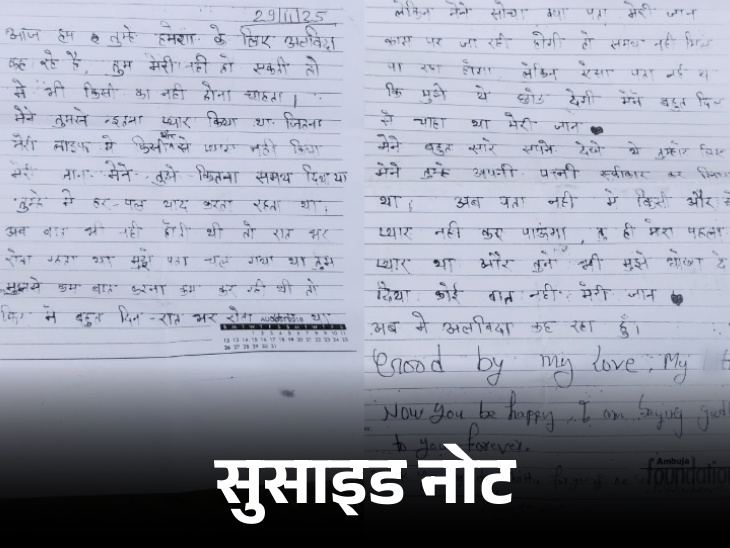 29/11/25
आज हम तुम्हे हमेशा के लिए अलविदा
कह रहे है, तुम मेरी नही हो सकती तो
मे भी किसी का नही होना चाहता।
मैने तुमसे इतना प्यार किया था जितना
मेरी लाइफ मे किसी से प्यार नही किया
मेरी जान मैने तुझे कितना समय दिया था
तुम्हे मे हर-पल याद करता रहता था,
अब बात भी नही होती थी तो रात भर
रोता रहता था मुझे पता चल गया था तुम
मुझसे कम बात करना कर रही थी तो
फिर मे बहुत दिन-रात भर रोता था
AUGUST 2018
S M T W T F S
12 13 14 15 16 17 18 19 20 21 22 23 24 25
26 27 28 29 30 31
लेकिन मैने सोचा क्या पता मेरी जान
काम पर जा रही होगी तो समय नही मिल
पा रहा होगा लेकिन ऐसा पता नही
कि मुझे ये छोड देगी मैने बहुत दिल
से चाहा था मेरी जान
मैने बहुत सारे सपने देखे थे तुम्हारे लिए
मैने तुम्हे अपनी पत्नी स्वीकार कर लिया
था, अब पता नही मे किसी और से
प्यार नही कर पाऊंगा, तु ही मेरा पहला
प्यार था और तुने भी मुझे धोखा दे
दिया कोई बात नही मेरी जान
अब मे अलविदा कह रहा हूँ।
Good by my love, My
Now you be happy, I am saying
to you forever.
Ambuja
foundation
सुसाइड नोट